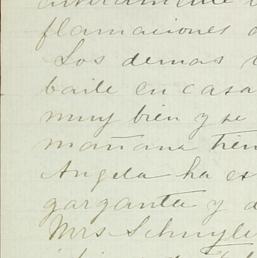 flamaciones
Los demas
baile en casa
muy bien y se
mañana tien
Angela ha es
garganta y d
Mrs Schuyle